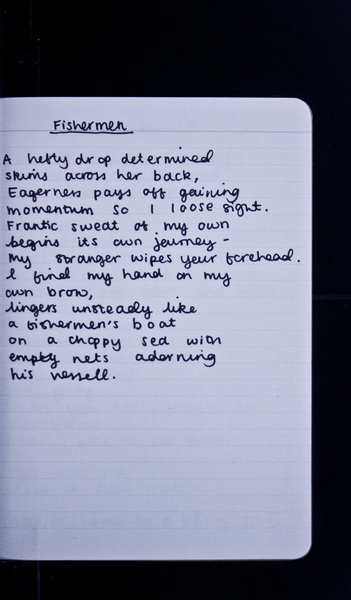 Fishermen
A hefty drop determined
skims across her back,
Eagerness pays off gaining
momentum so I loose sight.
Frantic sweat of my own
begins its own journey -
My stranger wipes your forehead.
I find my hand on my
own brow,
lingers unsteady like
a fishermen's boat
on a choppy sea with
empty nets adorning
his vessell.